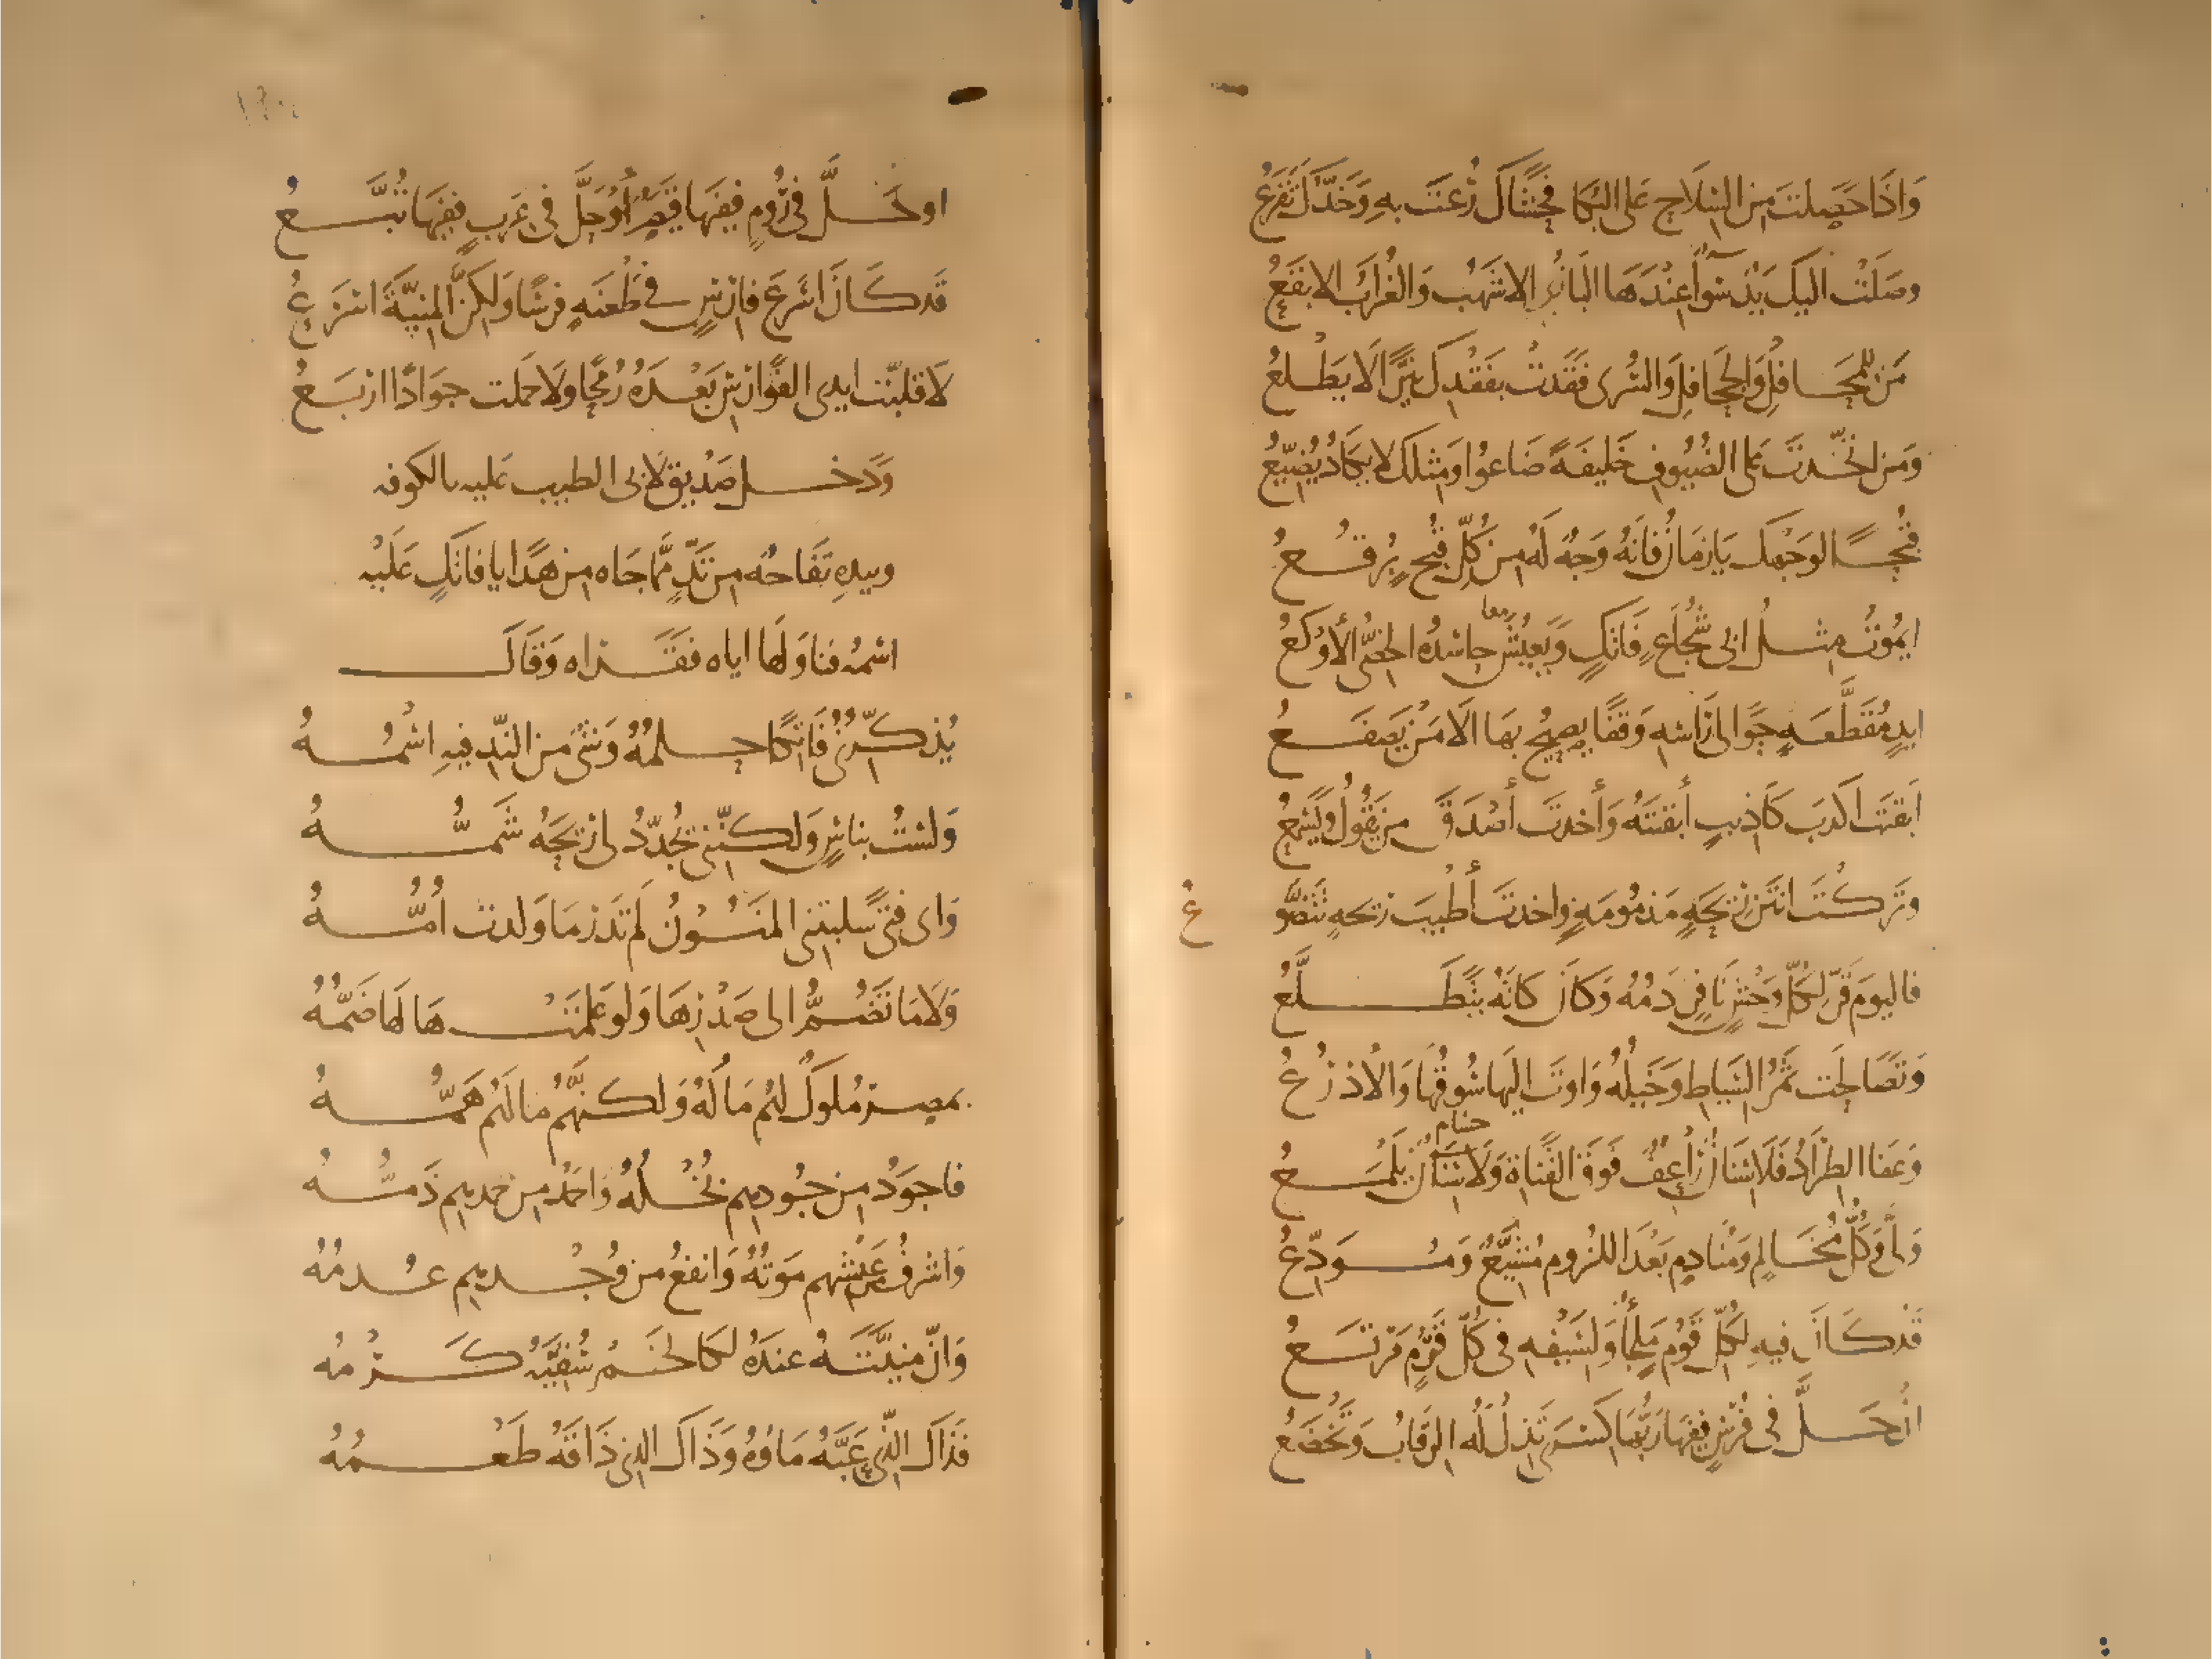 وَاذَا حَصِلتَ مِنَ السِّلَاحِ عَلَى البُكَا فَحَشَاكَ رُعتَ بِهِ وَخَدَّكَ تَقرَعُ
وصَلَتْ اليكَ يَدٌ سَوَآءٌ عِنْدَهَا البَازُ الاشَهبُ وَالغُرابُ الابقَعُ
مَن لِلمَحَافِلِ وَالجَحَافِلِ وَالسُّرى فَقَدَتْ بفَقْدِكَ نَيِّرًا لَا يَطْلعُ
وَمَنِ اتخّذتَ على الضُيُوفِ خَليفَةً ضَاعوُا وَمثلكَ لا يكَادُ يُضَيّعُ
قُبحًا لوَجْهِكَ يَا زمَانُ فَانَّهُ وَجهٌ لَهُ مِن كُلِّ قُبحٍ بُرقُعُ
ايَمُوتُ مِثلُ ابى شُجَاعٍ فَاتكٍ وَيَعِيْشُ حاسِدُهُ الخصِىُّ الأوْكعُ
ايدٍ مُقَطَّعَةٍ حَوَالى رَأسِهِ وَقفًا يصِيحُ بهَا الَا مَنْ يَصفَعُ
أبقَيتَ اكذبَ كَاذِبٍ أبقَيتَهُ وَأخذتَ أصْدَقَ مَن يَقُولُ وَيَسْمَعُ
وتَركْتَ انتَنَ رِيحَةٍ مَذمُومَةٍ واخذتَ أطْيبَ رِيحَةٍ تَتَضَوَّ
غ
فاليومَ قَرّ لكُلِّ وَحْشٍ نَافِرٍ دَمُهُ وَكانَ كانَّهُ يَتَطَلَّعُ
وَتَصَالحَت ثَمَرُ السِّيَاطِ وَخَيلُهُ وَاوَتْ اليهَا سُوقُهَا وَالأذرُعُ
وَعَفا الطِرَادُ فَلا سِنَانٌ رَاعِفٌ فَوقَ القَنَاةِ وَلَا سِنَانٌ يَلْمَعُ
حسَام
وَلَّى وَكُلُّ مُخَالِمٍ وَمُنَادِمٍ بَعْدَ اللزُومِ مُشَيَّعٌ وَمُوَدِّعُ
قَدْ كَانَ فيهِ لكُلِّ قَوْمٍ مَلجَأٌ وَلسَيْفِهِ فى كُلِّ قَوْمٍ مَرتَعُ
انْ حَلَّ فى فُرْسٍ ففِيهَا رَبُّهَا كسْرَى تَذِلُ لَهُ الرِقابُ وَتَخْضَعُ
اوحَلَّ فى رُومٍ ففِيهَا قَيْصَرٌ أوْحَلَّ فى عَرَبٍ ففِيهَا تُبَّعُ
قَد كَانَ اسْرَعَ فارسٍ فى طَعْنَةٍ فرسًا وَلكِنَّ المنِيَّةَ اسْرَعُ
لَا قلبّت ايدى الفَوَارسِ بَعْدَهُ رُمحًا ولَا حمَلت جوَادًا اربَعُ
وَدَخل صَديقٌ لَابى الطيب عَليه بالكوفه
وبيدِهِ تفّاحَه من نَدٍّ ممّا جَاه من هَدَايا فاتكٍ عَليْه
اسْمُه فنَاوَلهَا اياه فقَراه وَقَالَ
يُذكّرُنى فَاتِكًا حِلمُهُ وَشىٌ مِنَ النّدِ فيهِ اسْمُهُ
وَلسْتُ بناسٍ وَلكنّنى يُجَدّدُ لى رِيحَهُ شَمُّهُ
وَاى فتًى سَلَبتنى المَنُونُ لَم تَدرِ مَا وَلدت اُمُّهُ
وَلَا مَا تَضُمُّ الى صَدْرِهَا وَلوْ عَلمَتْهَا لهَا ضَمُّهُ
بمصر مُلوكٌ لهُم مَا لَهُ وَلكنّهُم ما لَهُم هَمُّهُ
فاجوَدُ مِن جُودِهِم بُخْلُهُ وَاحمَدُ مِن حمدِهِم ذَمُّهُ
وَاشرفُ مِن عَيْشِهم مَوتُهُ وَانفعُ من وُجْدِهِم عُدمُهُ
وَانّ منيَّتَهُ عندَهُ لكَالخَمْرِ سُقِيَهُ كَرْمُهُ
فَذَاكَ الّذى عَبَّهُ مَاؤهُ وَذَاكَ الذى ذَاقَهُ طَعْمُهُ